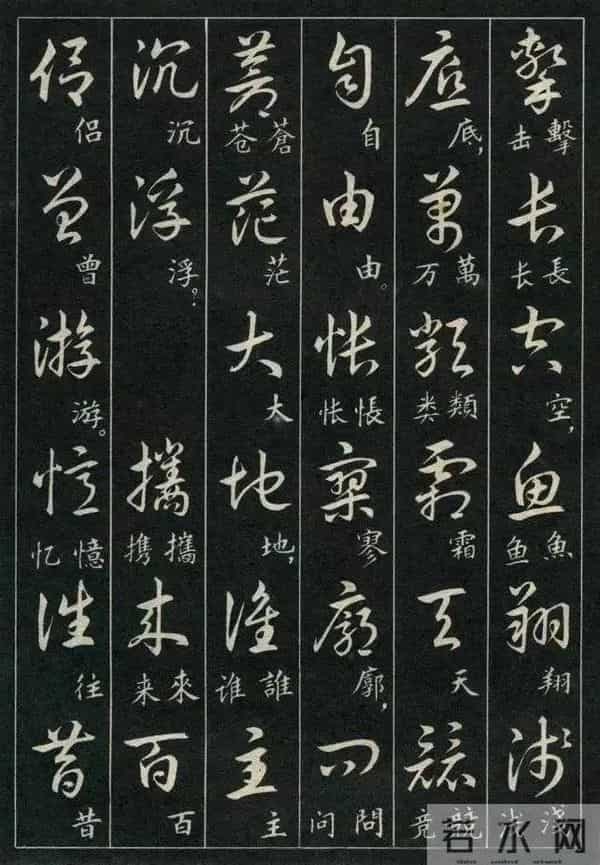 擊长空鱼翔浅
擊击 長长 空, 魚鱼 翔 淺浅
底萬類霜天競
底, 萬万 類类 霜 天 競竞
自由悵寥廓問
自 由。 悵怅 寥 廓, 問问
蒼茫大地誰主
蒼苍 茫 大 地, 誰谁 主
沉浮 攜來百
沉 浮? 攜携 來来 百
侣曾游憶往昔
侣 曾 游。 憶忆 往 昔
若水网